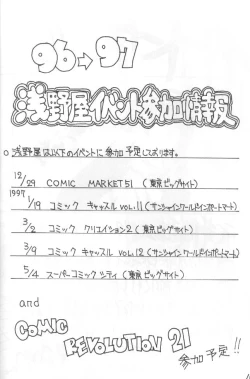 96→97
浅野屋イベント参加情報
○浅野屋は以下のイベントに参加予定しております。
12/29 COMIC MARKET51 (東京ビッグサイト)
1997
1/19 コミック キャッスル VOL.11 (サンシャインワールドインポートマート)
3/2 コミック クリエイション2 (東京ビッグサイト)
3/9 コミック キャッスル VOL.12 (サンシャインワールドインポートマート)
5/4 スーパーコミックシティ (東京ビッグサイト)
and
COMIC
REVOLUTION 21
参加予定!!